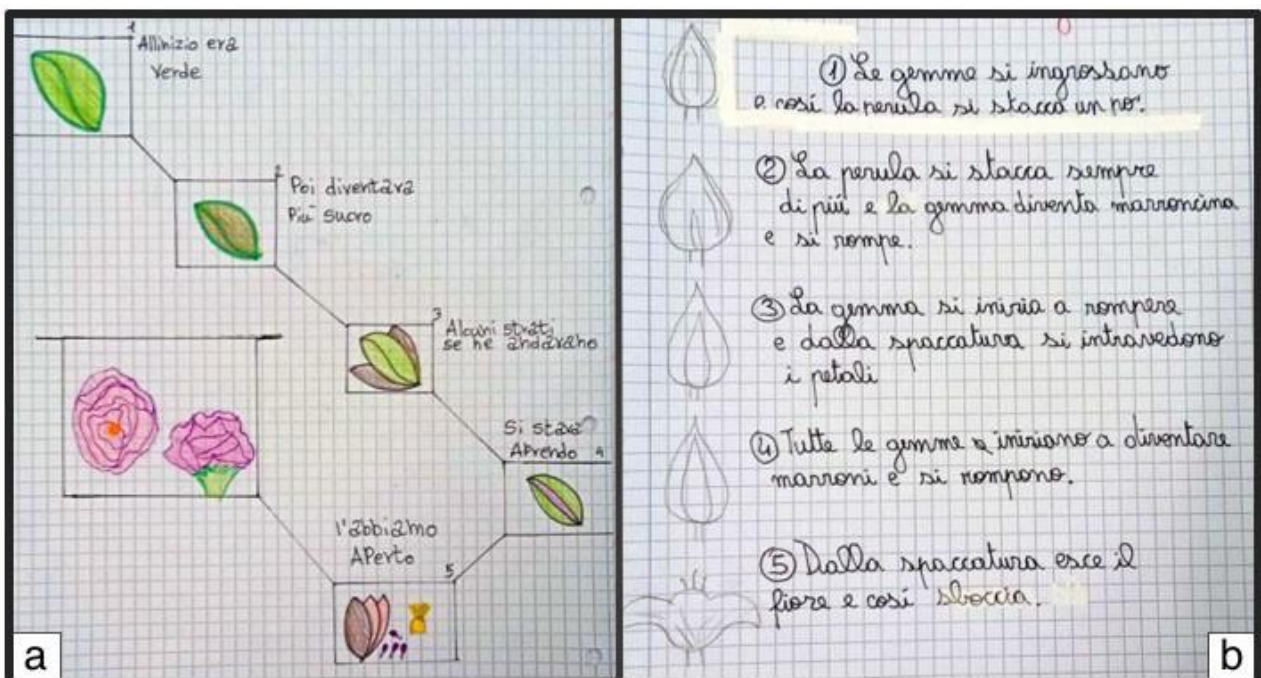 1
All'inizio era
verde
2
Poi diventava
Più scuro
3
Alcuni strati
se ne andavano
Si stava
APrendo 4
l'abbiamo
APerto
5
a
① Le gemme si ingrossano
e così la perula si stacca un po'.
② La perula si stacca sempre
di più e la gemma diventa marroncina
e si rompe.
③ La gemma si inizia a rompere
e dalla spaccatura si intravedono
i petali
④ Tutte le gemme iniziano a diventare
marroni e si rompono.
⑤ Dalla spaccatura esce il
fiore e così sboccia.
b